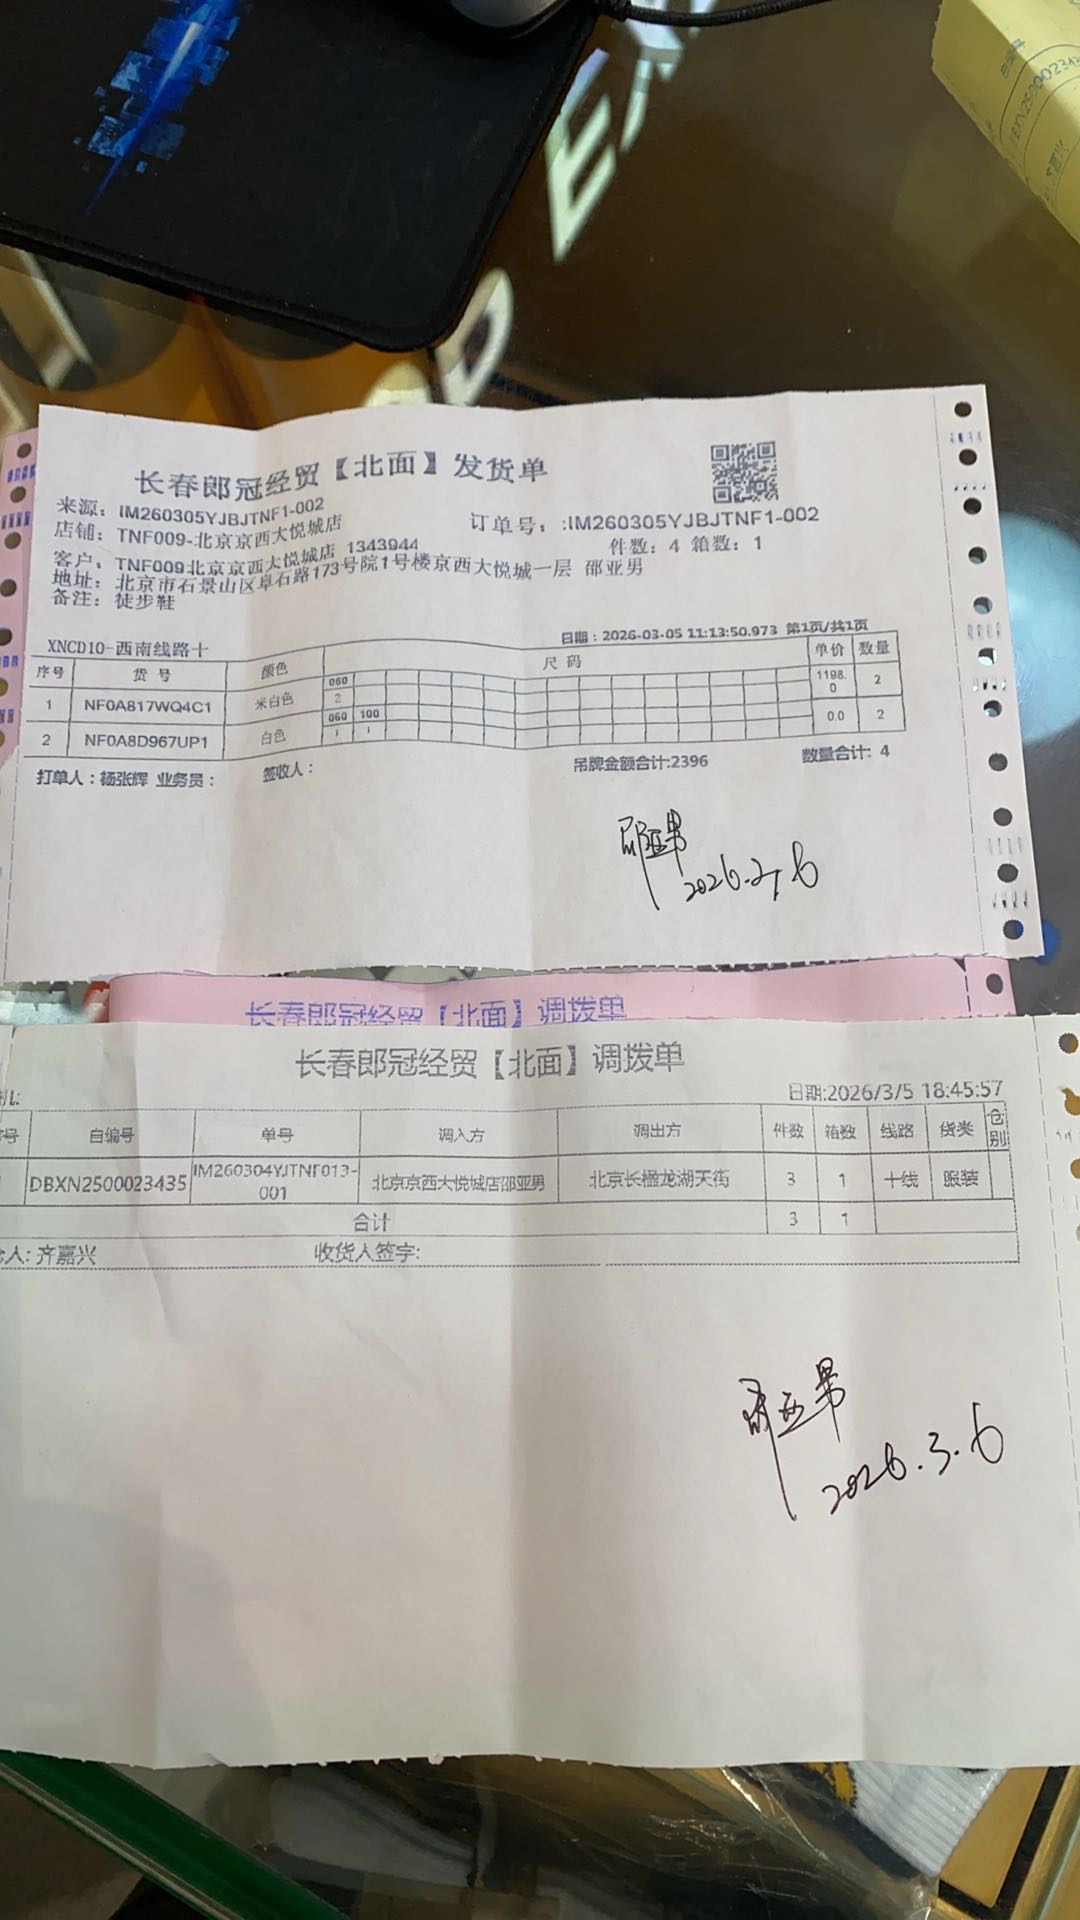 DBXN2500023435
长春郎冠经贸【北面】发货单
来源：IM260305YJBJTNF1-002
订单号：:IM260305YJBJTNF1-002
店铺：TNF009-北京京西大悦城店
件数：4 箱数：1
客户：TNF009北京京西大悦城店 1343944
地址：北京市石景山区阜石路173号院1号楼京西大悦城一层 邵亚男
备注：徒步鞋
日期：2026-03-05 11:13:50.973 第1页/共1页
XNCD10-西南线路十
序号 货号 颜色 尺码 单价 数量
060
1 NF0A817WQ4C1 米白色 2 1198.0 2
060 100
2 NF0A8D967UP1 白色 1 1 0.0 2
打单人：杨张辉 业务员： 签收人： 吊牌金额合计:2396 数量合计: 4
邵亚男
长春郎冠经贸【北面】调拨单
长春郎冠经贸【北面】调拨单
日期:2026/3/5 18:45:57
号 自编号 单号 调入方 调出方 件数 箱数 线路 货类 仓别
DBXN2500023435 IM260304YJTNF013-001 北京京西大悦城店邵亚男 北京长楹龙湖天街 3 1 十线 服装
合计 3 1
人: 齐嘉兴 收货人签字:
邵亚男
2026.3.6